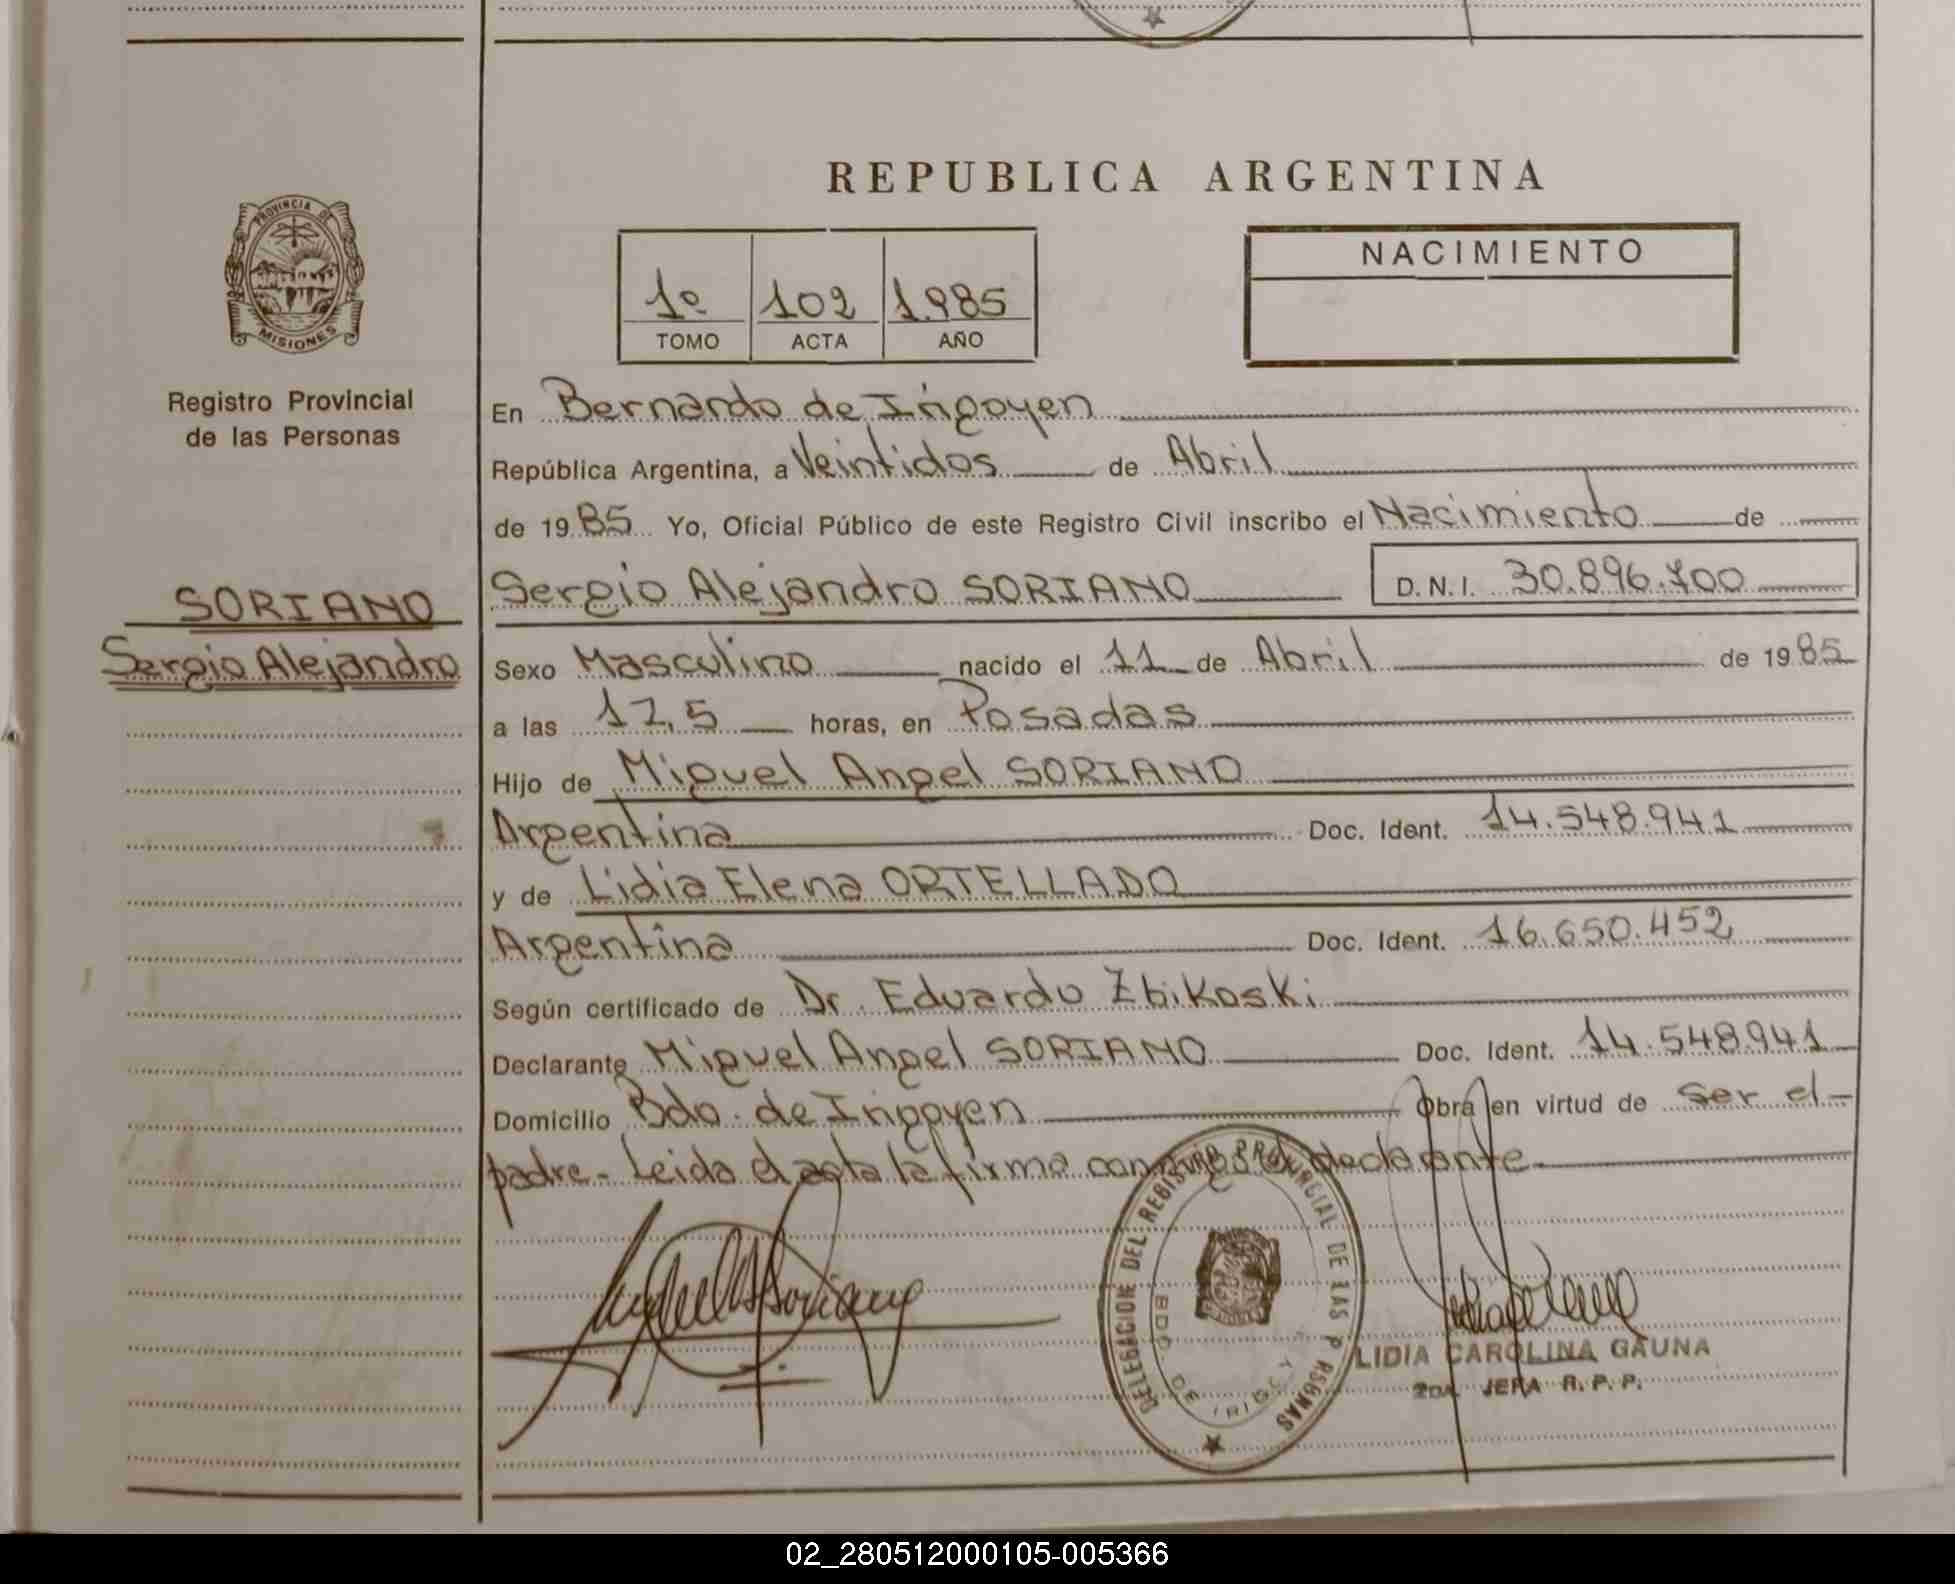 REPUBLICA ARGENTINA
PROVINCIA DE
MISIONES
Registro Provincial
de las Personas
SORIANO
Sergio Alejandro
1º 102 1.985
TOMO ACTA AÑO
NACIMIENTO
En Bernardo de Irigoyen
República Argentina, a Veintidos de Abril
de 1985 Yo, Oficial Público de este Registro Civil inscribo el Nacimiento de
Sergio Alejandro SORIANO D.N.I. 30.896.700
Sexo Masculino nacido el 11 de Abril de 1985
a las 17,5 horas, en Posadas
Hijo de Miguel Angel SORIANO
Argentina Doc. Ident. 14.548.941
y de Lidia Elena ORTELLADO
Argentina Doc. Ident. 16.650.452
Según certificado de Dr. Eduardo Zbikoski
Declarante Miguel Angel SORIANO Doc. Ident. 14.548.941
Domicilio Bdo. de Irigoyen Obra en virtud de ser el
padre.- Leida el acta la firma conmigo el declarante
DELEGACION DEL REGISTRO PROVINCIAL DE LAS PERSONAS
BDO. DE IRIGOY
LIDIA CAROLINA GAUNA
2DA. JEFA R.P.P.
02_280512000105-005366